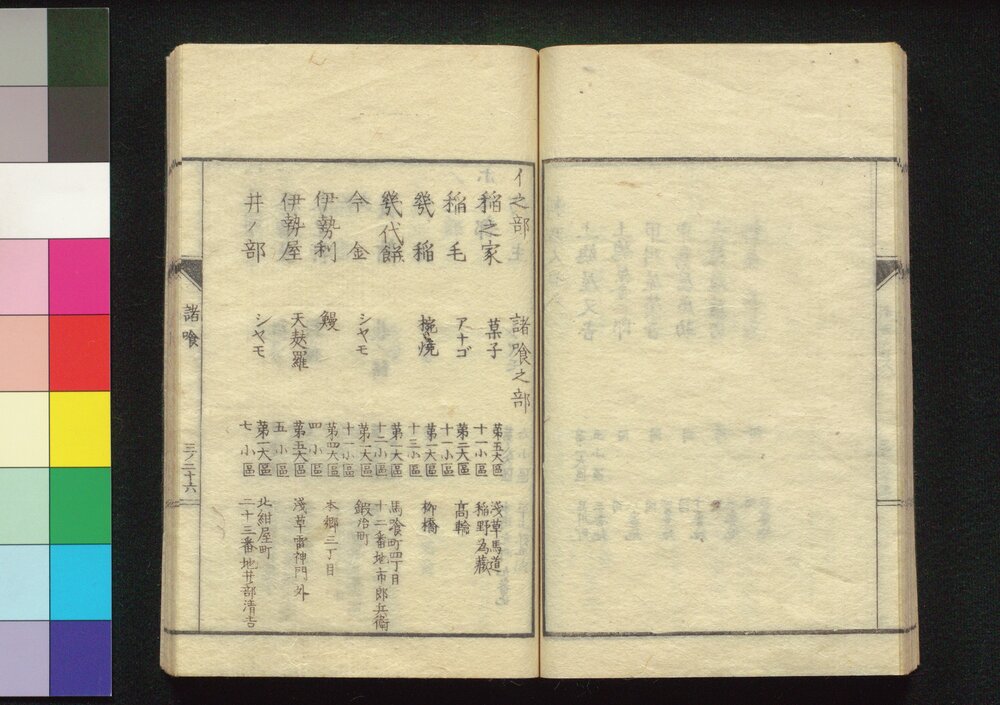 イ之部　諸喰之部
稲之家　菓子　第五大區十一小區　浅草馬道稲野為蔵
稲毛　アナゴ　第二大區十一小區　高輪
㡬稲　挽焼　第一大區十三小區　柳橋
㡬代餅　第一大區十二小區　馬喰町四丁目十二番地市郎兵衛
今金　シヤモ　第一大區十一小區　鍜冶町
伊勢利　鰻　第四大區四小區　本郷三丁目
伊勢屋　天麸羅　第五大區五小區　浅草雷神門外
井ノ部　シヤモ　第一大區七小區　北紺屋町二十三番地井部清吉
諸喰　三ノ二十六